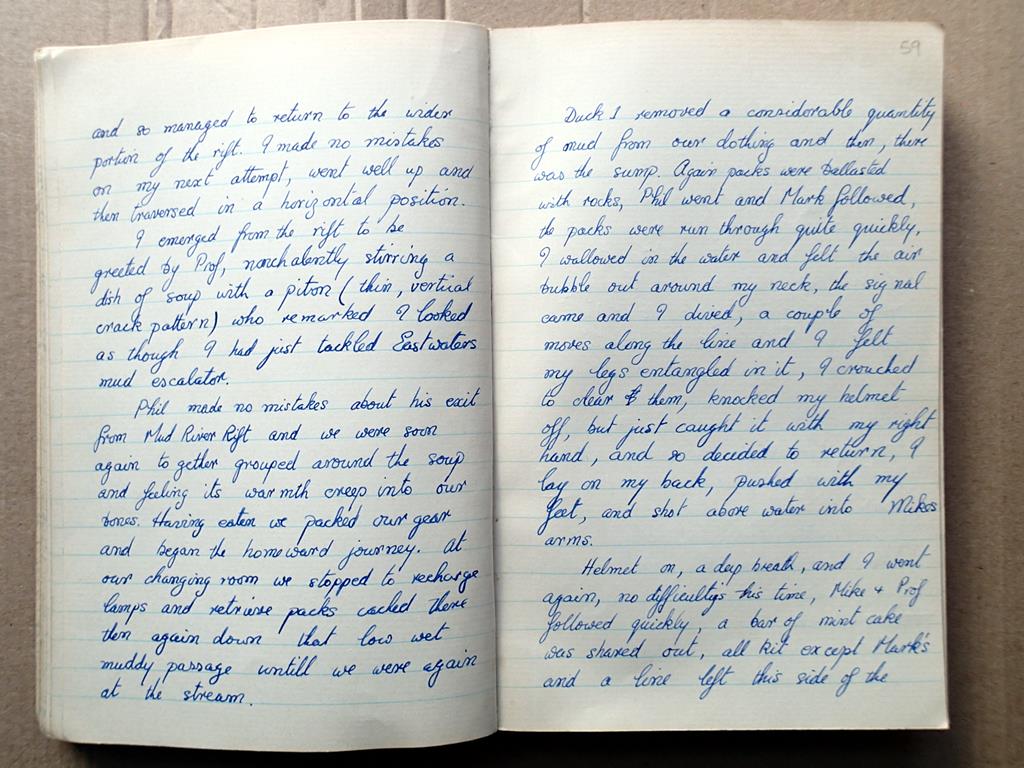 and so managed to return to the wider
portion of the rift. I made no mistakes
on my next attempt, went well up and
then traversed in a horizontal position.
I emerged from the rift to be
greeted by Prof, nonchalently stirring a
dish of soup with a piton (thin, vertical
crack pattern) who remarked I looked
as though I had just tackled Eastwaters
mud escalator.
Phil made no mistakes about his exit
from Mud River Rift and we were soon
again to gether grouped around the soup
and feeling its warmth creep into our
bones. Having eaten we packed our gear
and began the homeward journey. At
our changing room we stopped to recharge
lamps and retrieve packs cached there
then again down that low wet
muddy passage untill we were again
at the stream.
59
Duck I removed a considorable quantity
of mud from our clothing and then, there
was the sump. Again packs were ballasted
with rocks, Phil went and Mark followed,
the packs were run through quite quickly.
I wallowed in the water and felt the air
bubble out around my neck, the signal
came and I dived, a couple of
moves along the line and I felt
my legs entangled in it, I crouched
to clear them, knocked my helmet
off, but just caught it with my right
hand, and so decided to return, I
lay on my back, pushed with my
feet, and shot above water into Mikes
arms.
Helmet on, a deep breath, and I went
again, no difficultys this time, Mike + Prof
followed quickly, a bar of mint cake
was shared out, all kit except Mark's
and a line left this side of the